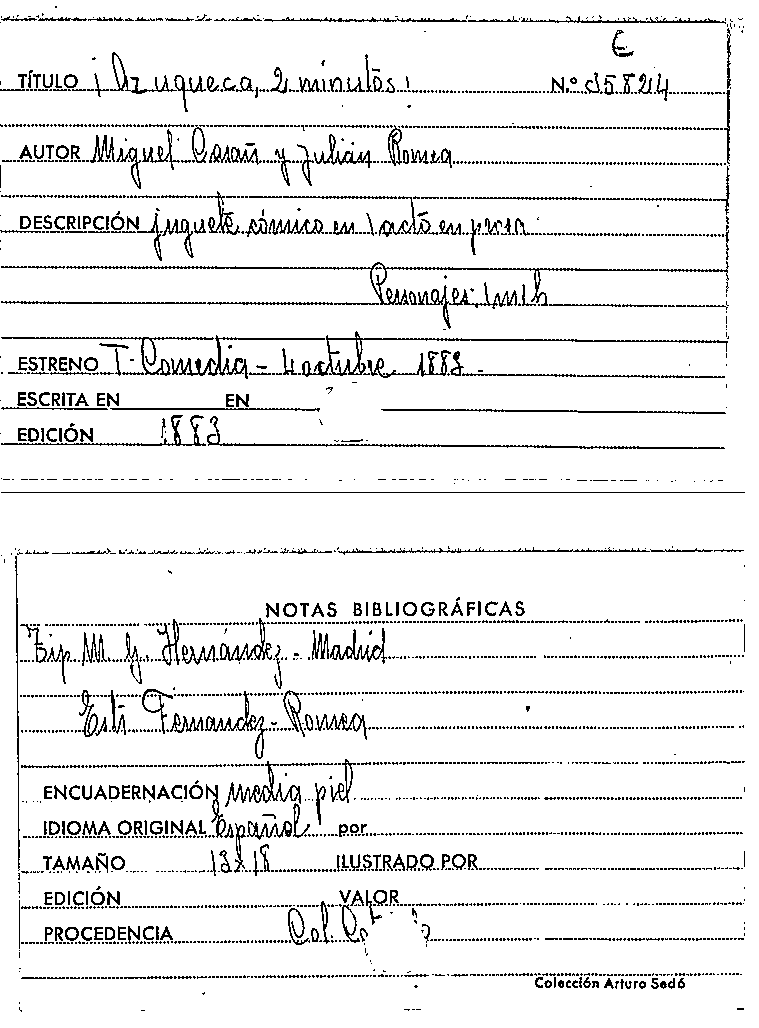 E
TÍTULO ¡Azuqueca, 2 minutos! N.º 35824
AUTOR Miguel Casañ y Julián Romea
DESCRIPCIÓN juguete cómico en 1 acto en prosa
Personajes:
ESTRENO T. Comedia - 4 octubre 1883.
ESCRITA EN EN
EDICIÓN 1883
NOTAS BIBLIOGRÁFICAS
Tip M. G. Hernández - Madrid
Fernandez - Romea
ENCUADERNACIÓN media piel
IDIOMA ORIGINAL Español por
TAMAÑO 13x18 ILUSTRADO POR
EDICIÓN VALOR
PROCEDENCIA Col.
Colección Arturo Sedó